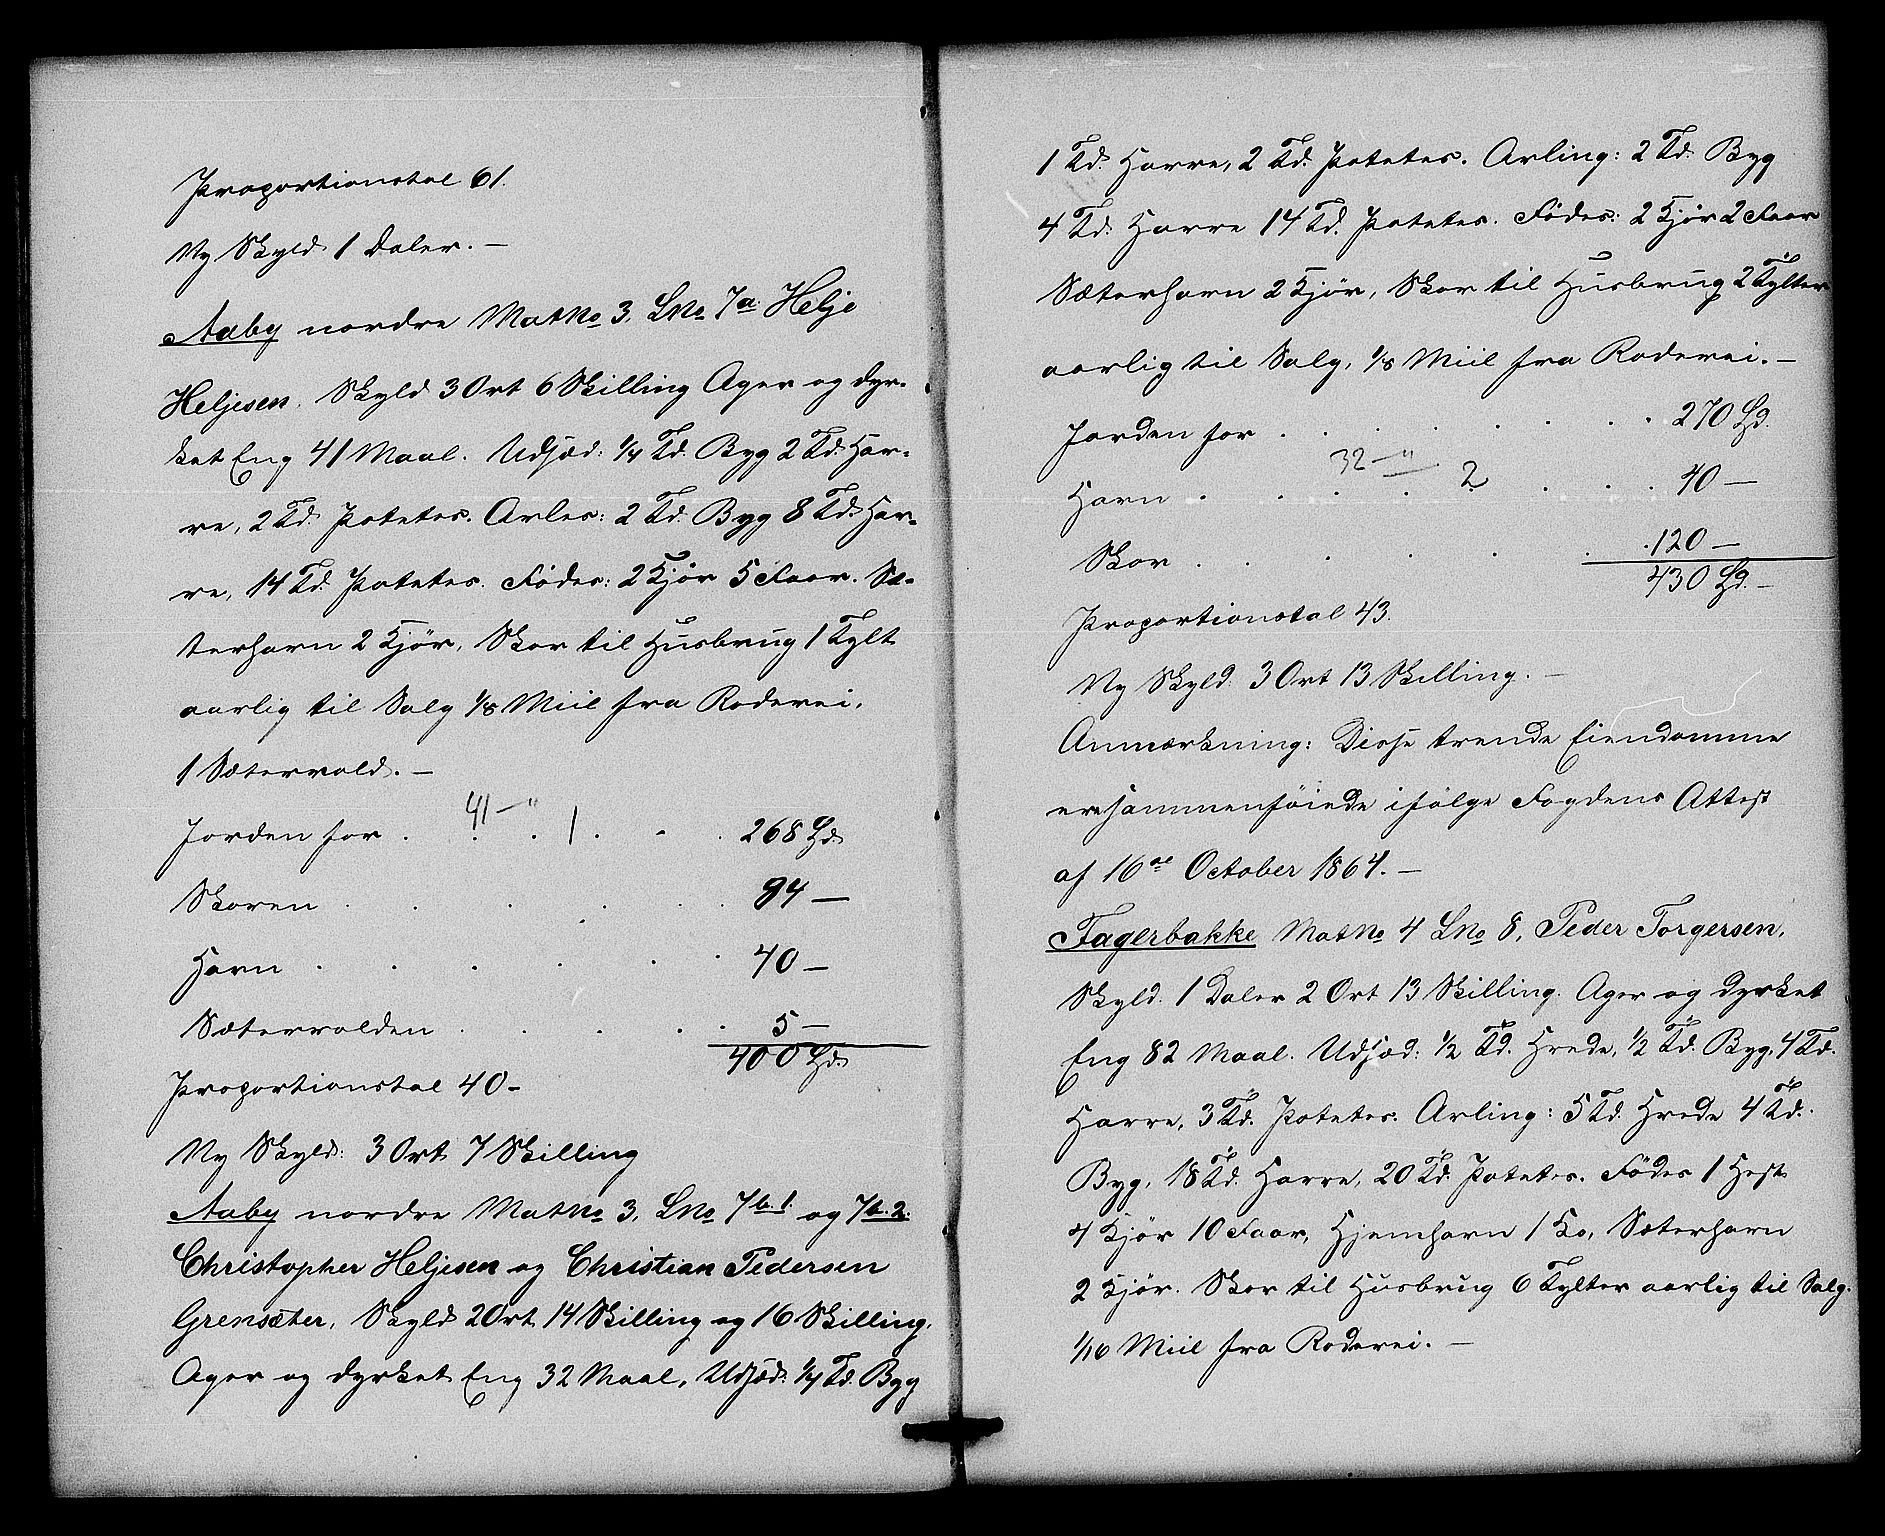 Proportionstal 61.
Ny Skyld 1 Daler. —
Aaby nordre Mat No 3, LNo 7a Helje
Heljesen. Skyld 3 Ort 6 Skilling Ager og dyr-
ket Eng 41 Maal. Udsæd: 1/4 Td. Byg 2 Td. Hav-
re, 2 Td. Potetes. Avles: 2 Td. Byg 8 Td. Hav-
re, 14 Td. Potetes. Födes: 2 Kjør 5 Faar. Sæ-
terhavn 2 Kjør, Skov til Husbrug 1 Tylt
aarlig til Salg 1/8 Miil fra Rodevei.
1 Sætervold. —
41 — " 1
Jorden for . . . . . 268 Ld.
Skoven . . . . . 84 —
Havn . . . . . 40 —
Sætervolden . . . . 5 —
400 Ld.
Proportionstal 40 —
Ny Skyld: 3 Ort 7 Skilling
Aaby nordre Mat No 3, LNo 7b.1. og 7b.2.
Christopher Heljesen og Christian Pedersen
Grensæter, Skyld 2 Ort 14 Skilling og 16 Skilling.
Ager og dyrket Eng 32 Maal, Udsæd: 1/4 Td. Byg
1 Td. Havre, 2 Td. Potetes. Avling: 2 Td. Byg
4 Td. Havre 14 Td. Potetes. Födes: 2 Kjør 2 Faar
Sæterhavn 2 Kjør, Skov til Husbrug 2 Tylter
aarlig til Salg, 1/8 Miil fra Rodevei. —
Jorden for . . . . . 270 Ld.
32 — " 2
Havn . . . . . 40 —
Skov . . . . . 120 —
430 Ld. —
Proportionstal 43.
Ny Skyld. 3 Ort 13 Skilling. —
Anmærkning: Disse trende Eiendomme
ere sammenföiede ifølge Fogdens Attest
af 16de October 1864. —
Fagerbakke Mat No 4 LNo 8, Peder Torgersen,
Skyld. 1 Daler 2 Ort 13 Skilling. Ager og dyrket
Eng 82 Maal. Udsæd: 1/2 Td. Hvede, 1/2 Td. Byg, 4 Td.
Havre, 3 Td. Potetes. Avling: 5 Td. Hvede 4 Td.
Byg, 18 Td. Havre, 20 Td. Potetes. Födes 1 Hest
4 Kjør 10 Faar, Hjemhavn 1 Ko, Sæterhavn
2 Kjør. Skov til Husbrug 6 Tylter aarlig til Salg.
1/16 Miil fra Rodevei. —